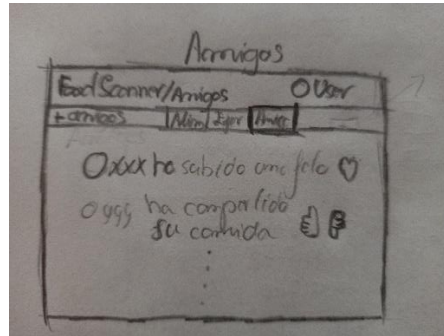 Amigos
Food Scanner/Amigos O User
+ amigos Alim Ejer Amig
O xxx ha subido una foto
O yyy ha compartido
su comida